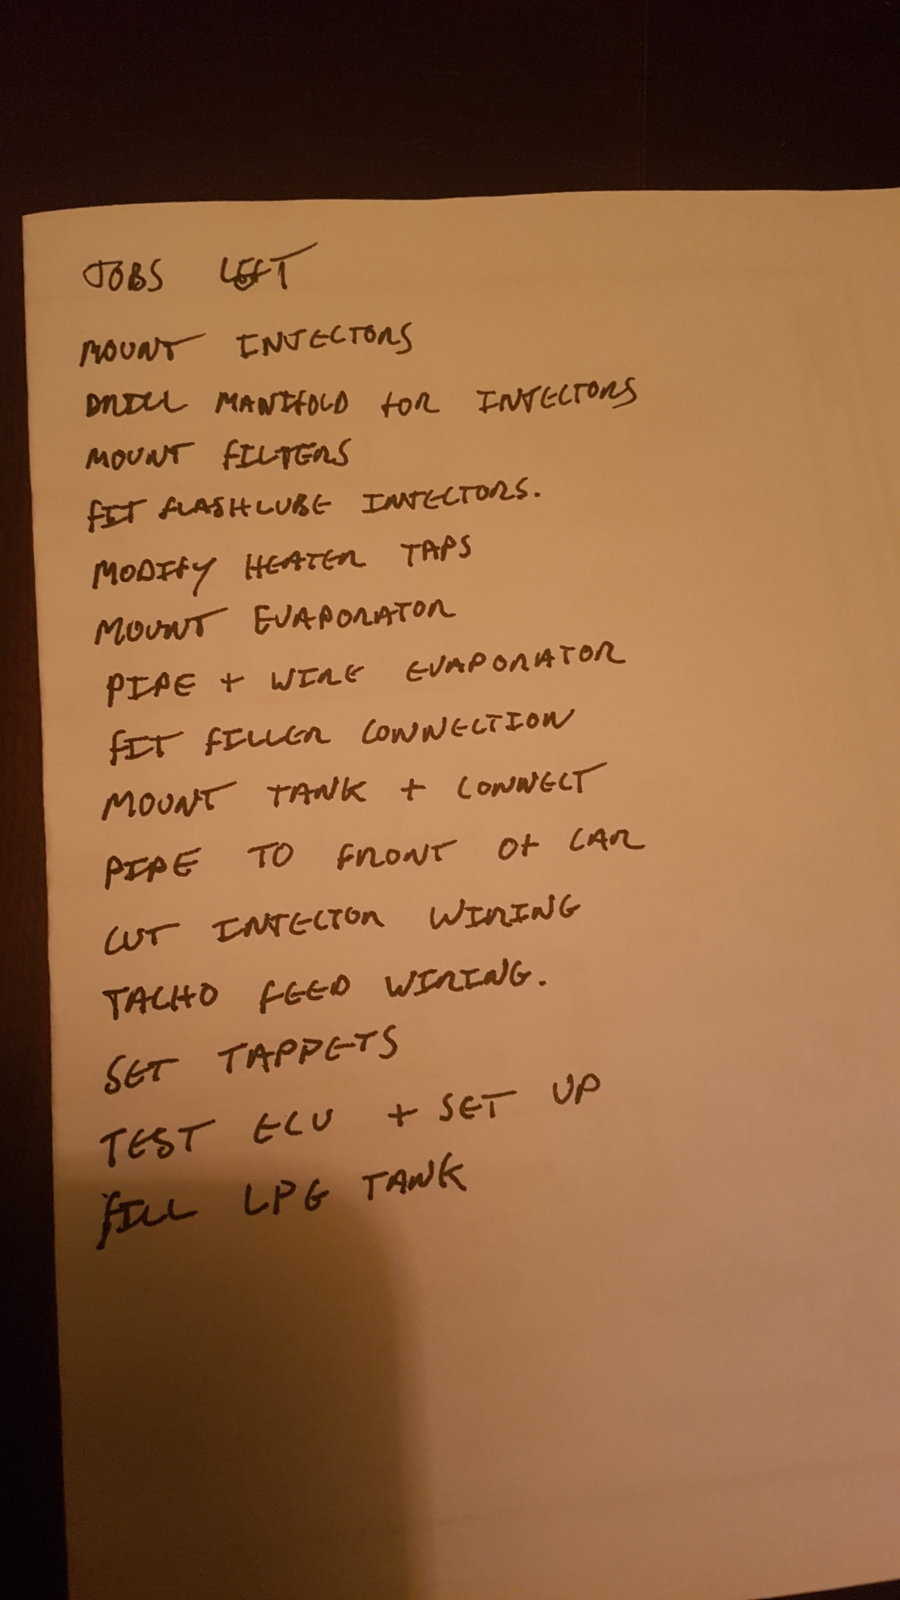 JOBS LEFT
MOUNT INJECTORS
DRILL MANIFOLD FOR INJECTORS
MOUNT FILTERS
FIT FLASHLUBE INJECTORS.
MODIFY HEATER TAPS
MOUNT EVAPORATOR
PIPE + WIRE EVAPORATOR
FIT FILLER CONNECTION
MOUNT TANK + CONNECT
PIPE TO FRONT OF CAR
CUT INJECTOR WIRING
TACHO FEED WIRING.
SET TAPPETS
TEST ECU + SET UP
FILL LPG TANK